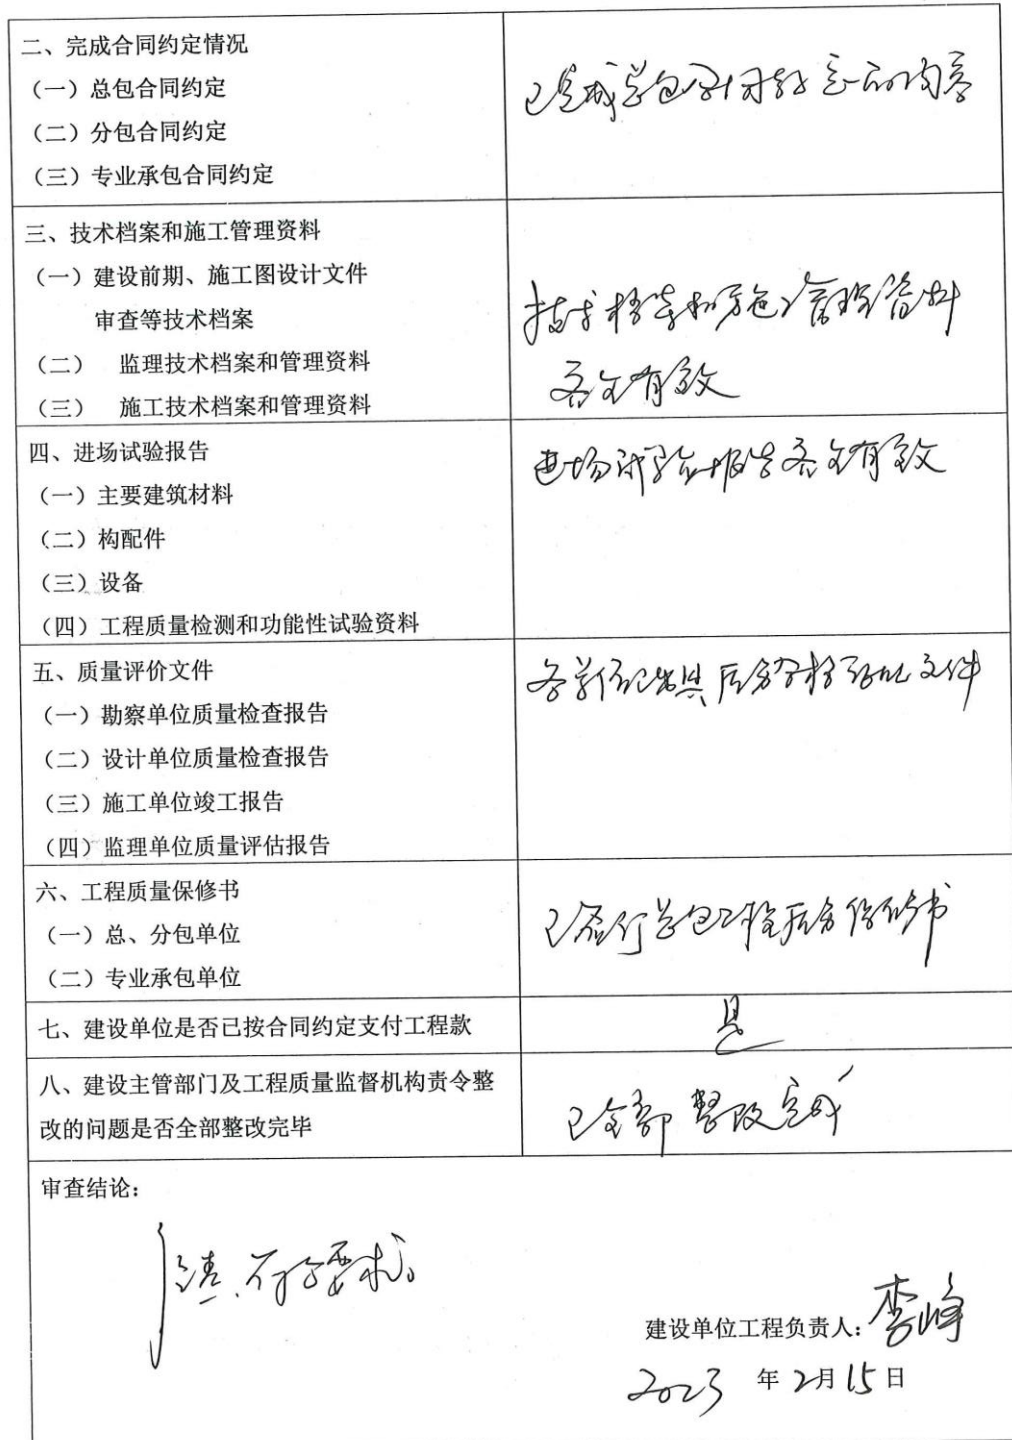 二、完成合同约定情况
（一）总包合同约定
（二）分包合同约定
（三）专业承包合同约定
已完成总包合同约定的内容
三、技术档案和施工管理资料
（一）建设前期、施工图设计文件
审查等技术档案
（二） 监理技术档案和管理资料
（三） 施工技术档案和管理资料
技术档案和施工管理资料
齐全有效
四、进场试验报告
（一）主要建筑材料
（二）构配件
（三）设备
（四）工程质量检测和功能性试验资料
进场试验报告齐全有效
五、质量评价文件
（一）勘察单位质量检查报告
（二）设计单位质量检查报告
（三）施工单位竣工报告
（四）监理单位质量评估报告
各单位已出具质量合格证明文件
六、工程质量保修书
（一）总、分包单位
（二）专业承包单位
已签订总包工程质量保修书
七、建设单位是否已按合同约定支付工程款
是
八、建设主管部门及工程质量监督机构责令整
改的问题是否全部整改完毕
已全部整改完成
审查结论：
符合要求。
建设单位工程负责人：李峰
2023 年 2月 15 日